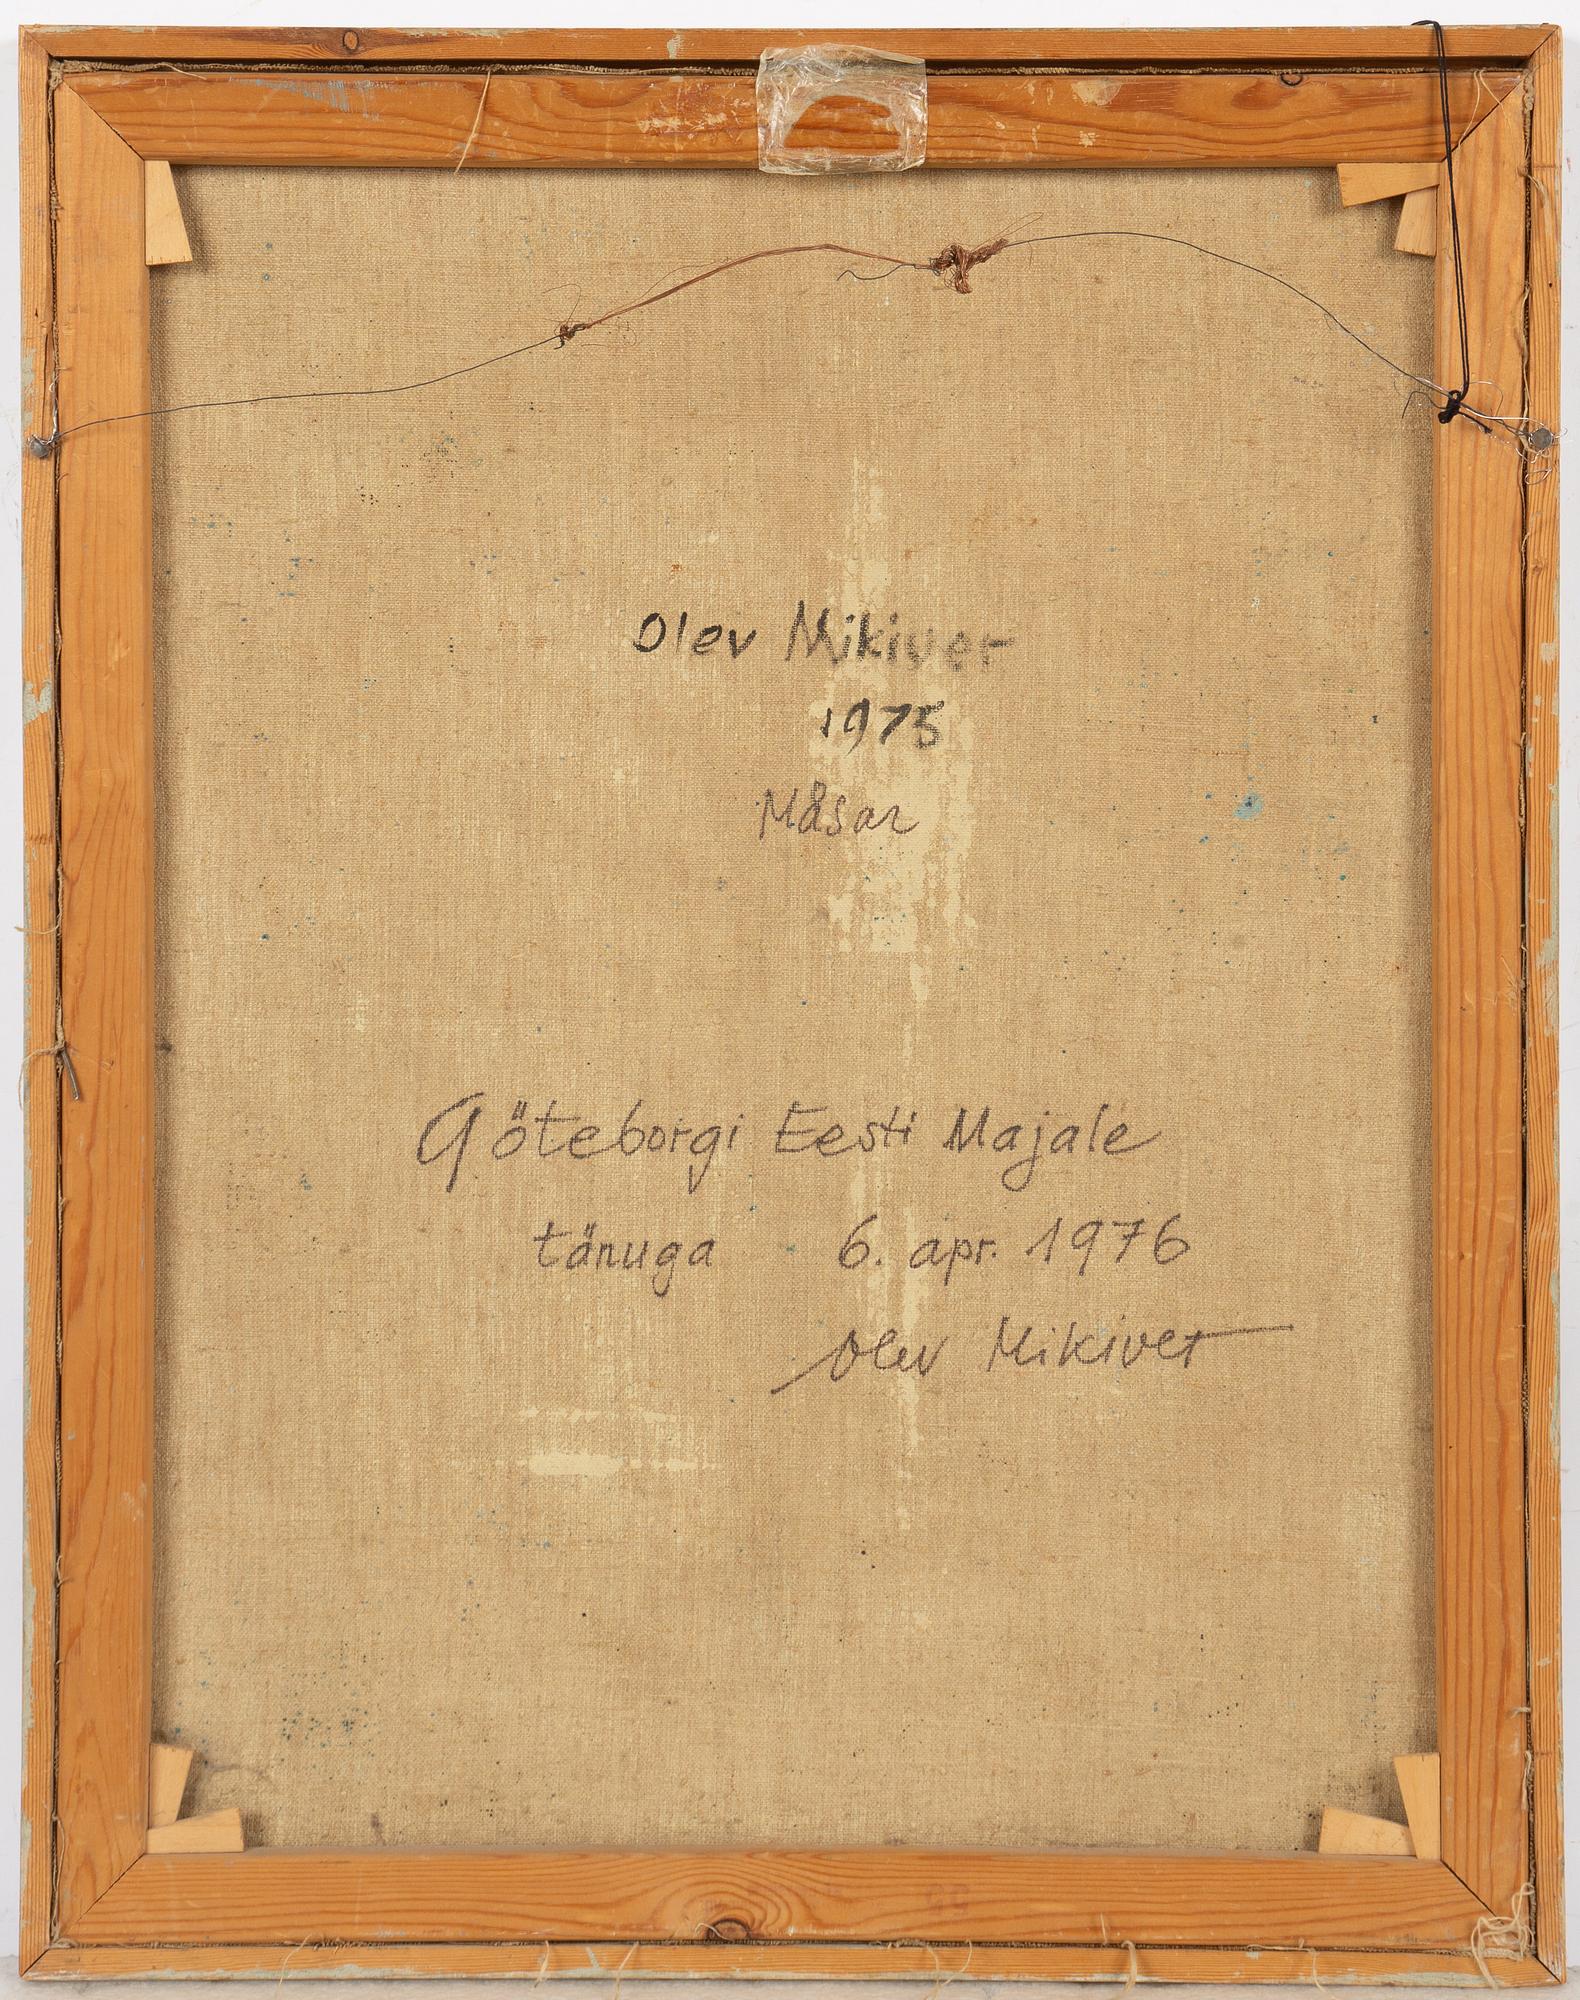 Olev Mikiver
1975
Måsar
Göteborgi Eesti Majale
tänuga 6. apr. 1976
Olev Mikiver